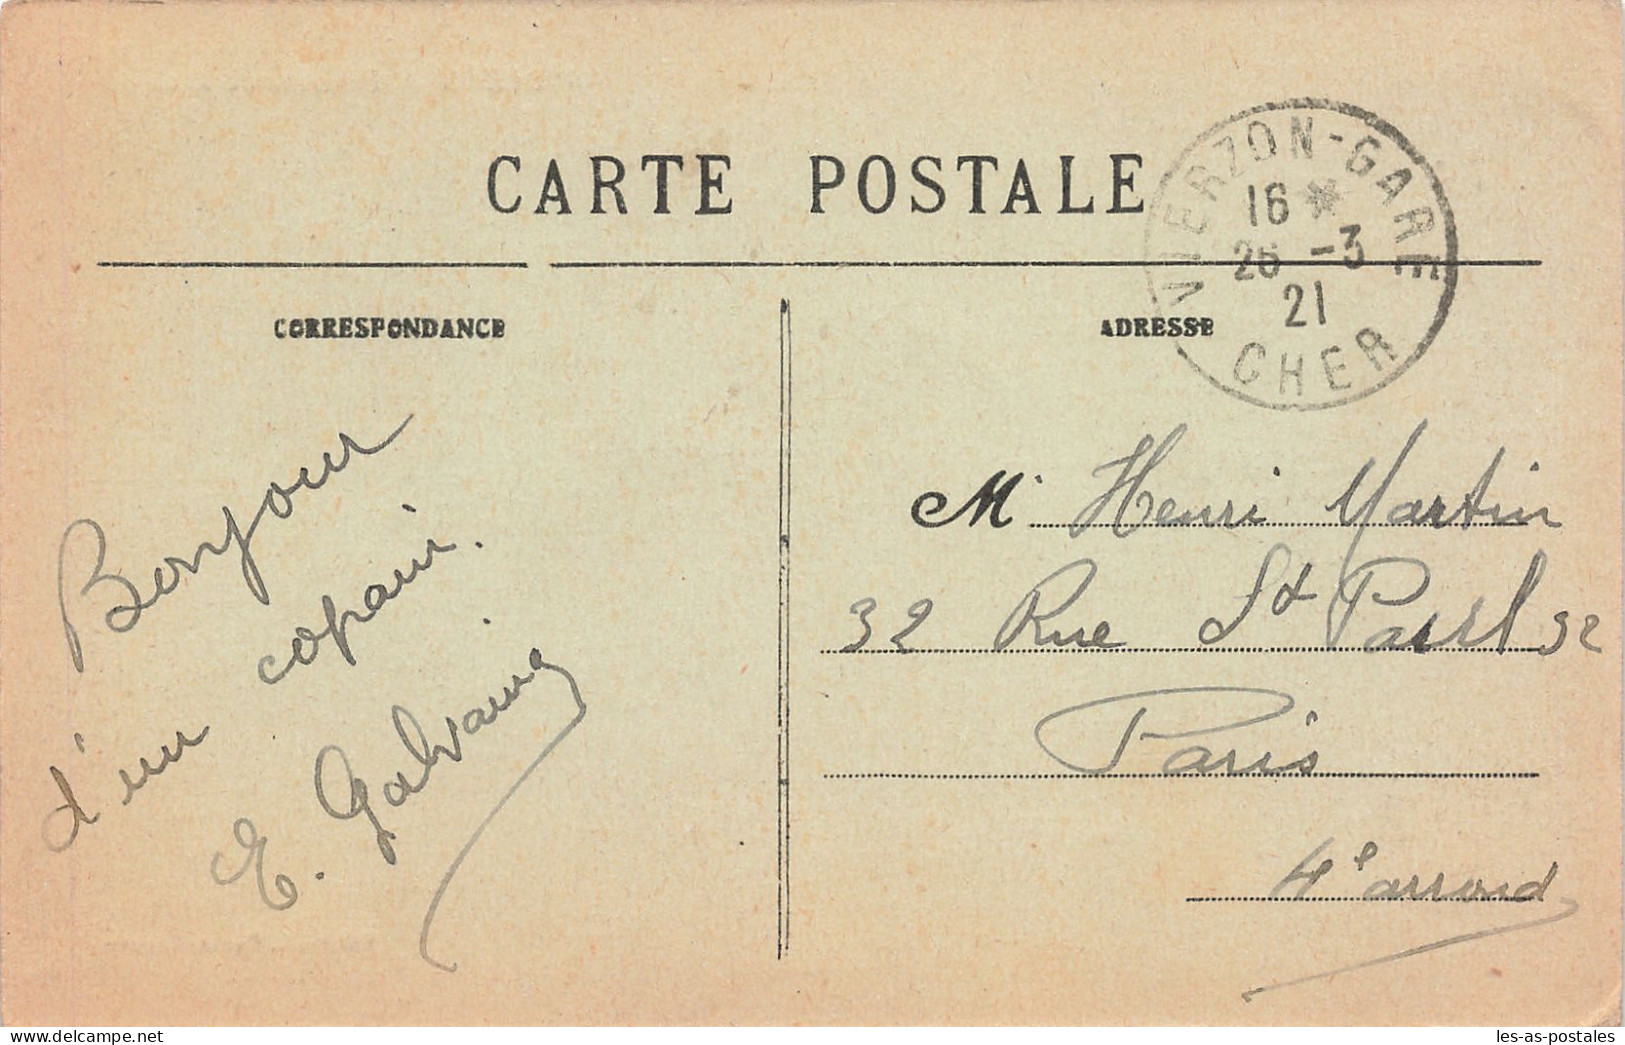 CARTE POSTALE
VIERZON-GARE
16 *
26 -3
21
CHER
CORRESPONDANCE
ADRESSE
Bonjour
d'un copain.
E. Galvaing
M. Henri Martin
32 Rue St Paul 32
Paris
4e arrond
les-as-postales